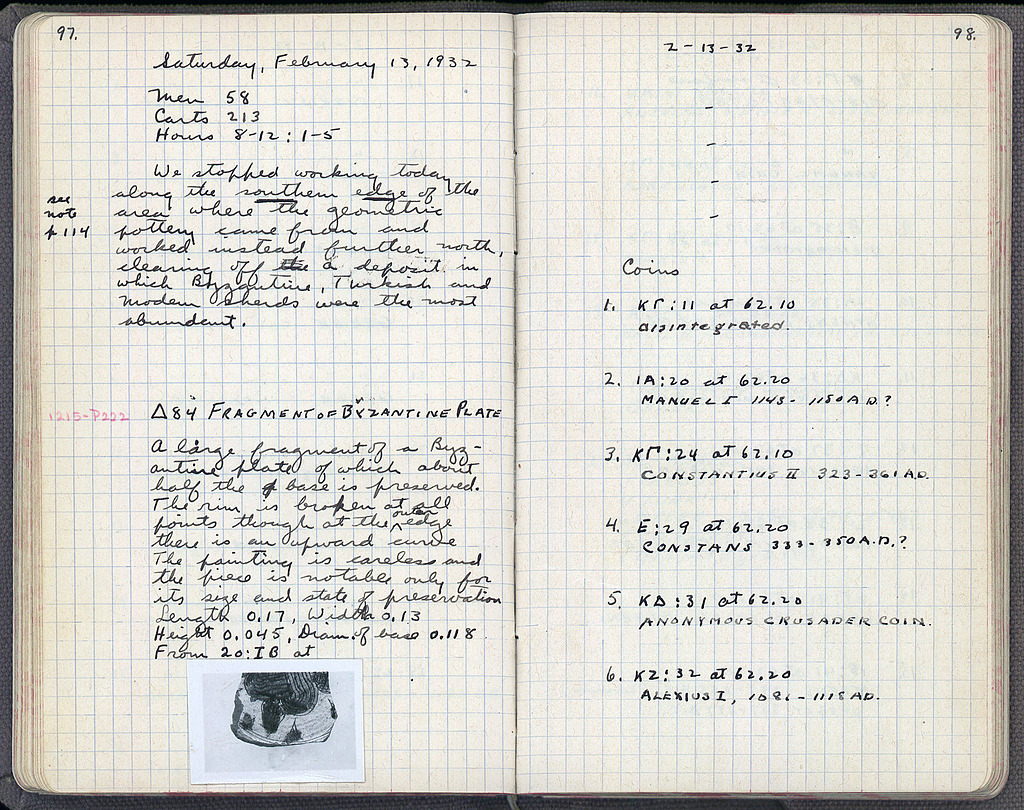 97.
Saturday, February 13, 1932
Men 58
Carts 213
Hours 8-12 : 1-5
We stopped working today
along the southern edge of the
area where the geometric
pottery came from and
worked instead further north,
clearing off the a deposit in
which Byzantine, Turkish and
modern sherds were the most
abundant.
see
note
p 114
1215-P222
Δ84 FRAGMENT OF BYZANTINE PLATE
A large fragment of a Byz-
antine plate of which about
half the base is preserved.
The rim is broken at all
points though at the outer edge
there is an upward curve
The painting is careless and
the piece is notable only for
its size and state of preservation
Length 0.17, Width 0.13
Height 0.045, Diam. of base 0.118
From 20:IB at
98.
2-13-32
-
-
-
-
Coins
1. ΚΓ:11 at 62.10
disintegrated.
2. IA:20 at 62.20
MANUEL I 1143-1180 A.D.?
3. ΚΓ:24 at 62.10
CONSTANTIUS II 323-361 A.D.
4. E:29 at 62.20
CONSTANS 333-350 A.D.?
5. ΚΔ:31 at 62.20
ANONYMOUS CRUSADER COIN.
6. KZ:32 at 62.20
ALEXIUS I, 1081-1118 AD.